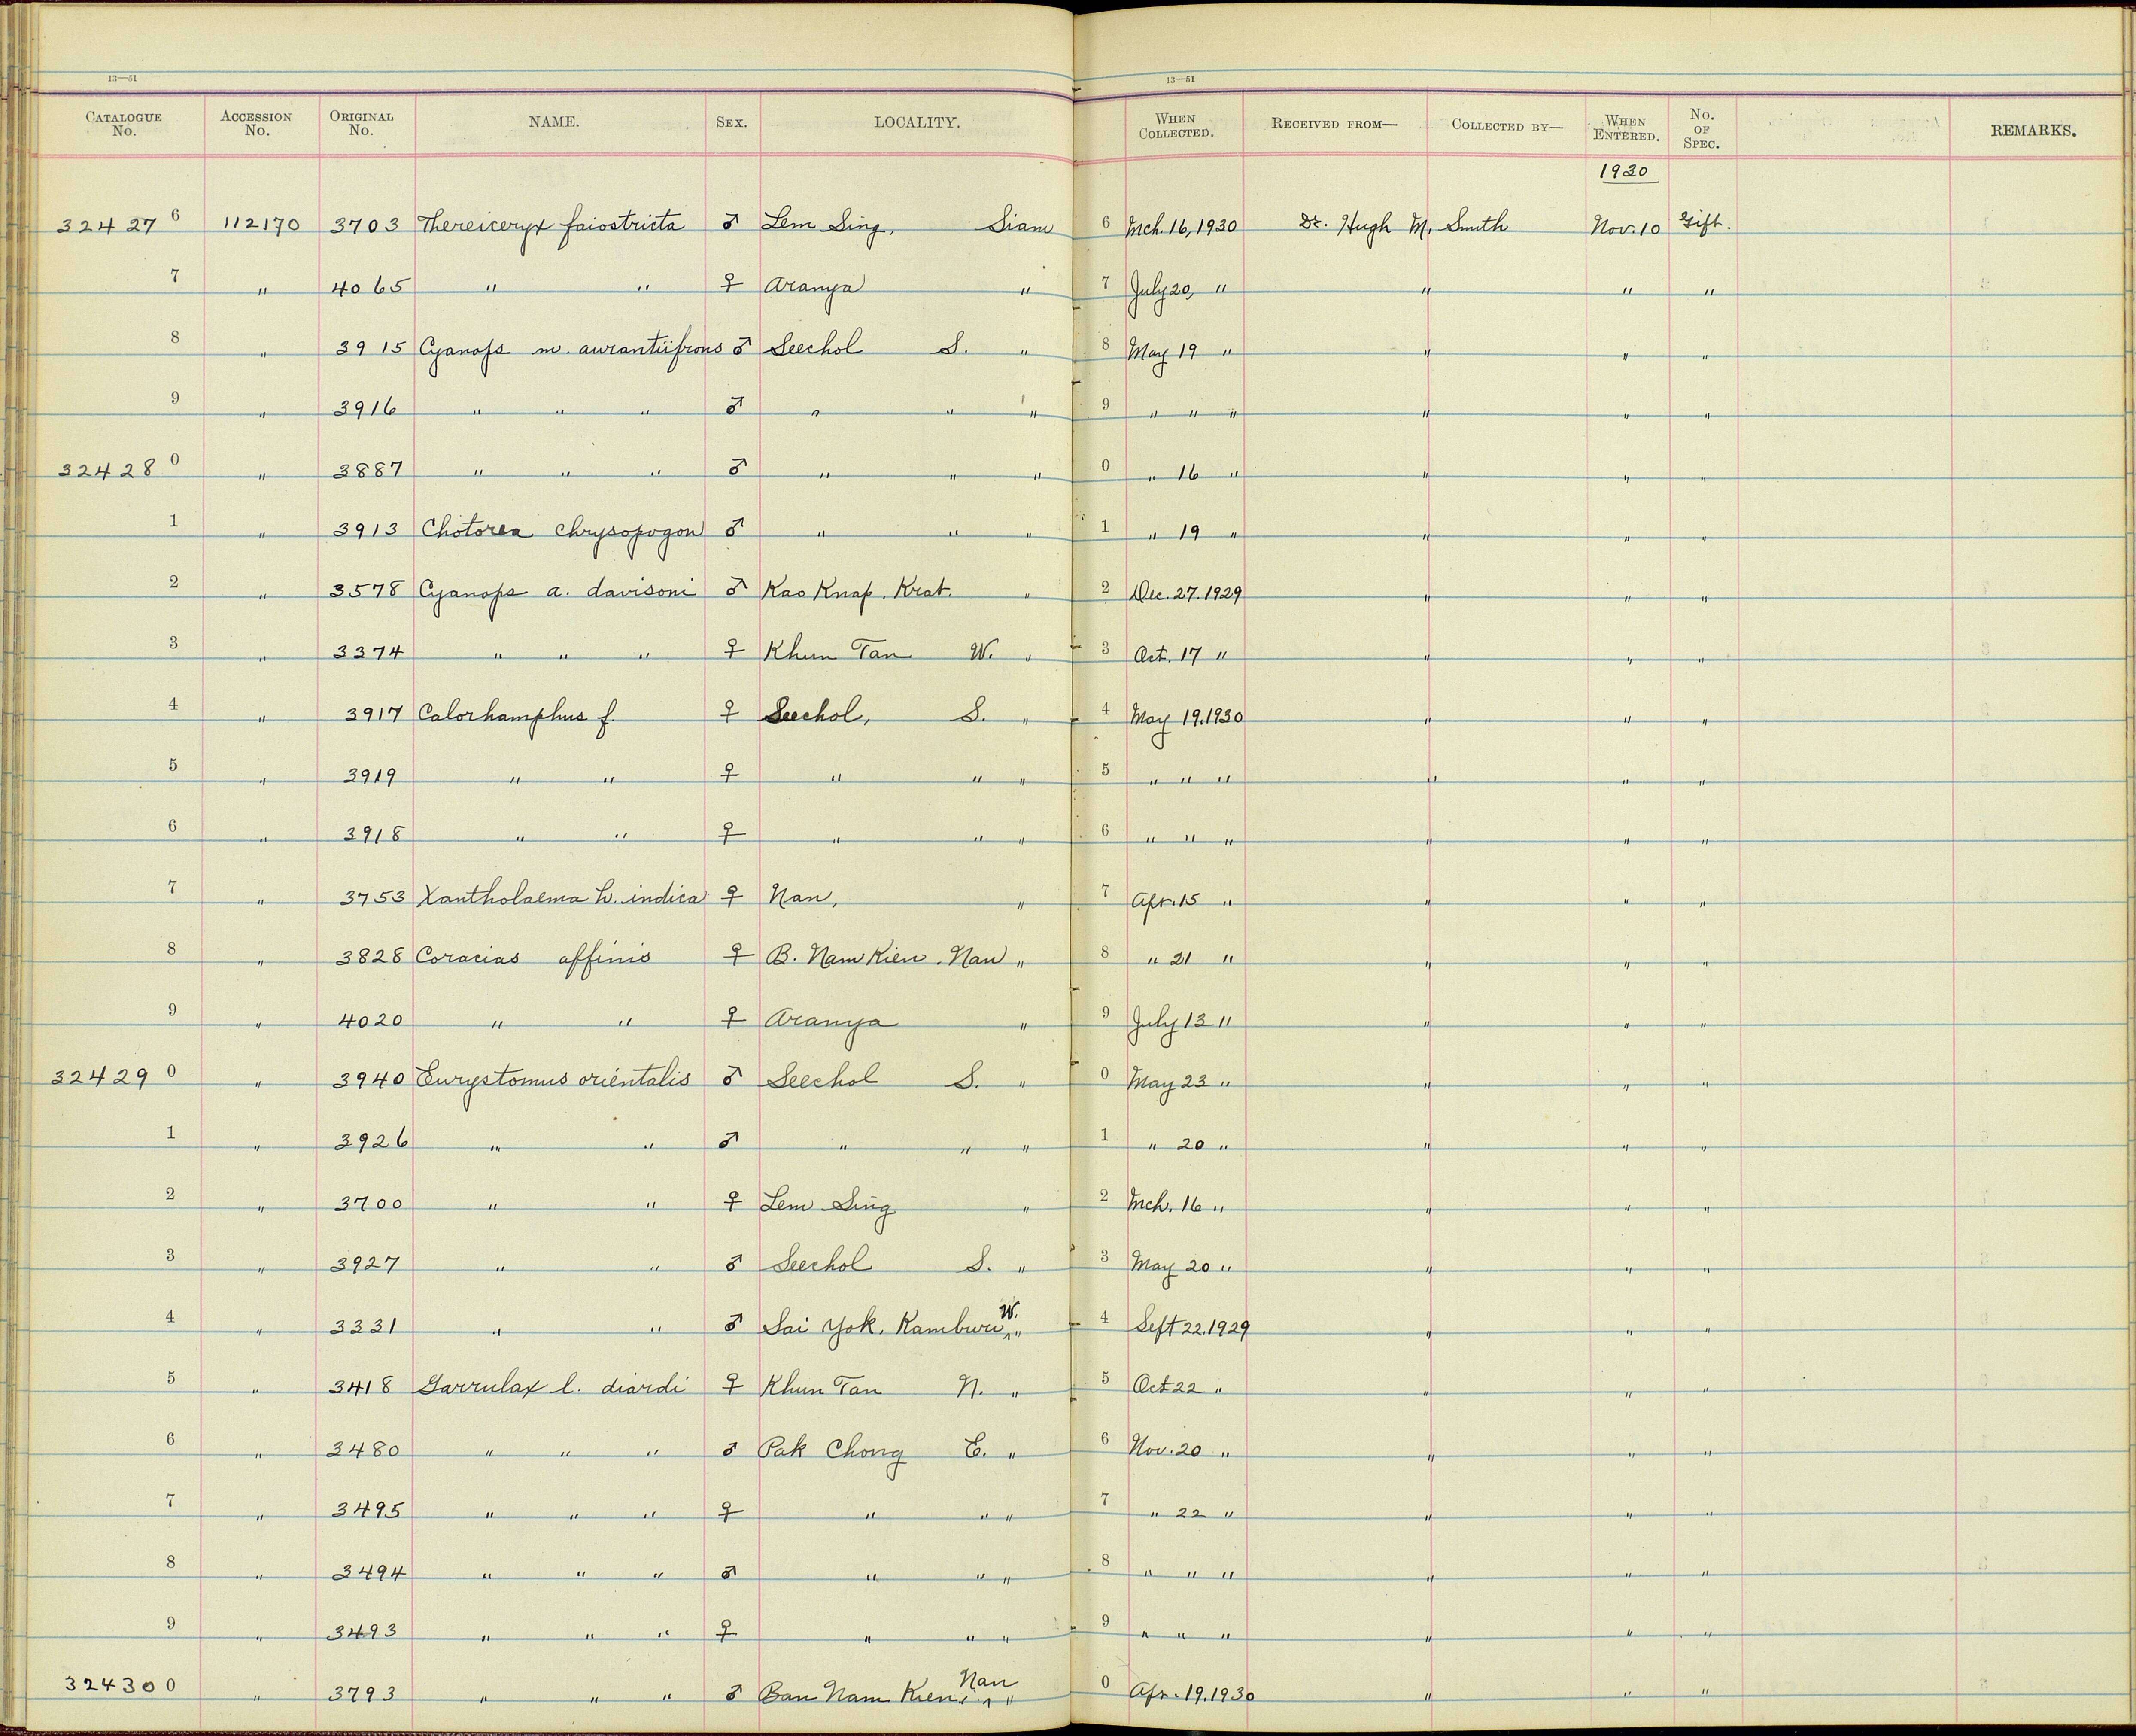 13—51 13—51
CATALOGUE No. ACCESSION No. ORIGINAL No. NAME. SEX. LOCALITY. WHEN COLLECTED. RECEIVED FROM— COLLECTED BY— WHEN ENTERED. No. OF SPEC. REMARKS.
1930
324276 112170 3703 Thereiceryx faiostricta ♂ Lem Sing, Siam 6 Mch. 16, 1930 Dr. Hugh M. Smith Nov. 10 Gift.
7 " 4065 " " ♀ Aranya " 7 July 20, " " " "
8 " 3915 Cyanops m. aurantiifrons ♂ Seechol S. " 8 May 19 " " " "
9 " 3916 " " " ♂ " " " 9 " " " " " "
324280 " 3887 " " " ♂ " " " 0 " 16 " " " "
1 " 3913 Chotorea chrysopogon ♂ " " " 1 " 19 " " " "
2 " 3578 Cyanops a. davisoni ♂ Kao Knap. Krat. " 2 Dec. 27. 1929 " " "
3 " 3374 " " " ♀ Khun Tan W. " 3 Oct. 17 " " " "
4 " 3917 Calorhamphus f. ♀ Seechol, S. " 4 May 19. 1930 " " "
5 " 3919 " " ♀ " " " 5 " " " " " "
6 " 3918 " " ♀ " " " 6 " " " " " "
7 " 3753 Xantholaema h. indica ♀ Nan, " 7 Apr. 15 " " " "
8 " 3828 Coracias affinis ♀ B. Nam Kien. Nan " 8 " 21 " " " "
9 " 4020 " " ♀ Aranya " 9 July 13 " " " "
324290 " 3940 Eurystomus orientalis ♂ Seechol S. " 0 May 23 " " " "
1 " 3926 " " ♂ " " " 1 " 20 " " " "
2 " 3700 " " ♀ Lem Sing " 2 Mch. 16 " " " "
3 " 3927 " " ♂ Seechol S. " 3 May 20 " " " "
4 " 3331 " " ♂ Sai Yok. Kamburi W. " 4 Sept 22. 1929 " " "
5 " 3418 Garrulax l. diardi ♀ Khun Tan N. " 5 Oct 22 " " " "
6 " 3480 " " " ♂ Pak Chong E. " 6 Nov. 20 " " " "
7 " 3495 " " " ♀ " " " 7 " 22 " " " "
8 " 3494 " " " ♂ " " " 8 " " " " " "
9 " 3493 " " " ♀ " " " 9 " " " " " "
324300 " 3793 " " " ♂ Ban Nam Kien. Nan " 0 Apr. 19. 1930 " " "